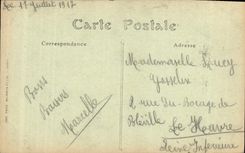 Le 17 Juillet 1917
Carte Postale
Correspondance
Adresse
Mademoiselle Lucy
2 rue du Bocage de
Bléville
Le Havre
Seine Inférieure
Bons
Baisers
Marcelle